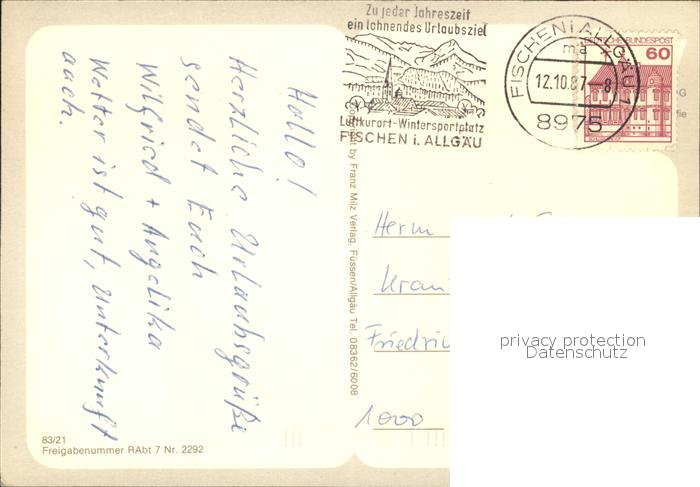 Zu jeder Jahreszeit
ein lohnendes Urlaubsziel
Luftkurort-Wintersportplatz
FISCHEN i. ALLGÄU
FISCHEN i ALLGÄU 1
ma
12.10.87-8
8975
DEUTSCHE BUNDESPOST
60
Hallo!
Herzliche Urlaubsgrüße
sendet Euch
Wilfried + Angelika
Wetter ist gut, Unterkunft
auch.
by Franz Milz Verlag, Füssen/Allgäu Tel. 08362/6008
Herrn
Friedri
1000
privacy protection
Datenschutz
83/21
Freigabenummer RAbt 7 Nr. 2292